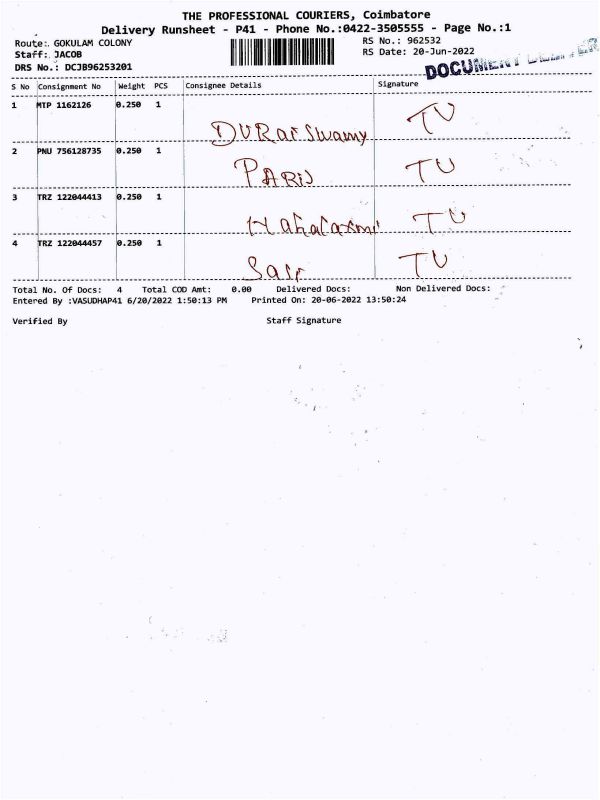 THE PROFESSIONAL COURIERS, Coimbatore
Delivery Runsheet - P41 - Phone No.:0422-3505555 - Page No.:1
Route: GOKULAM COLONY
RS No.: 962532
Staff: JACOB
RS Date: 20-Jun-2022
DRS No.: DCJB96253201
DOCUMENT
S No Consignment No Weight PCS Consignee Details Signature
1 MTP 1162126 0.250 1
DURai Swamy TU
2 PNU 756128735 0.250 1
PARis TU
3 TRZ 122044413 0.250 1
Mahalaxmi TU
4 TRZ 122044457 0.250 1
TU
Total No. Of Docs: 4 Total COD Amt: 0.00 Delivered Docs: Non Delivered Docs:
Entered By :VASUDHAP41 6/20/2022 1:50:13 PM Printed On: 20-06-2022 13:50:24
Verified By Staff Signature